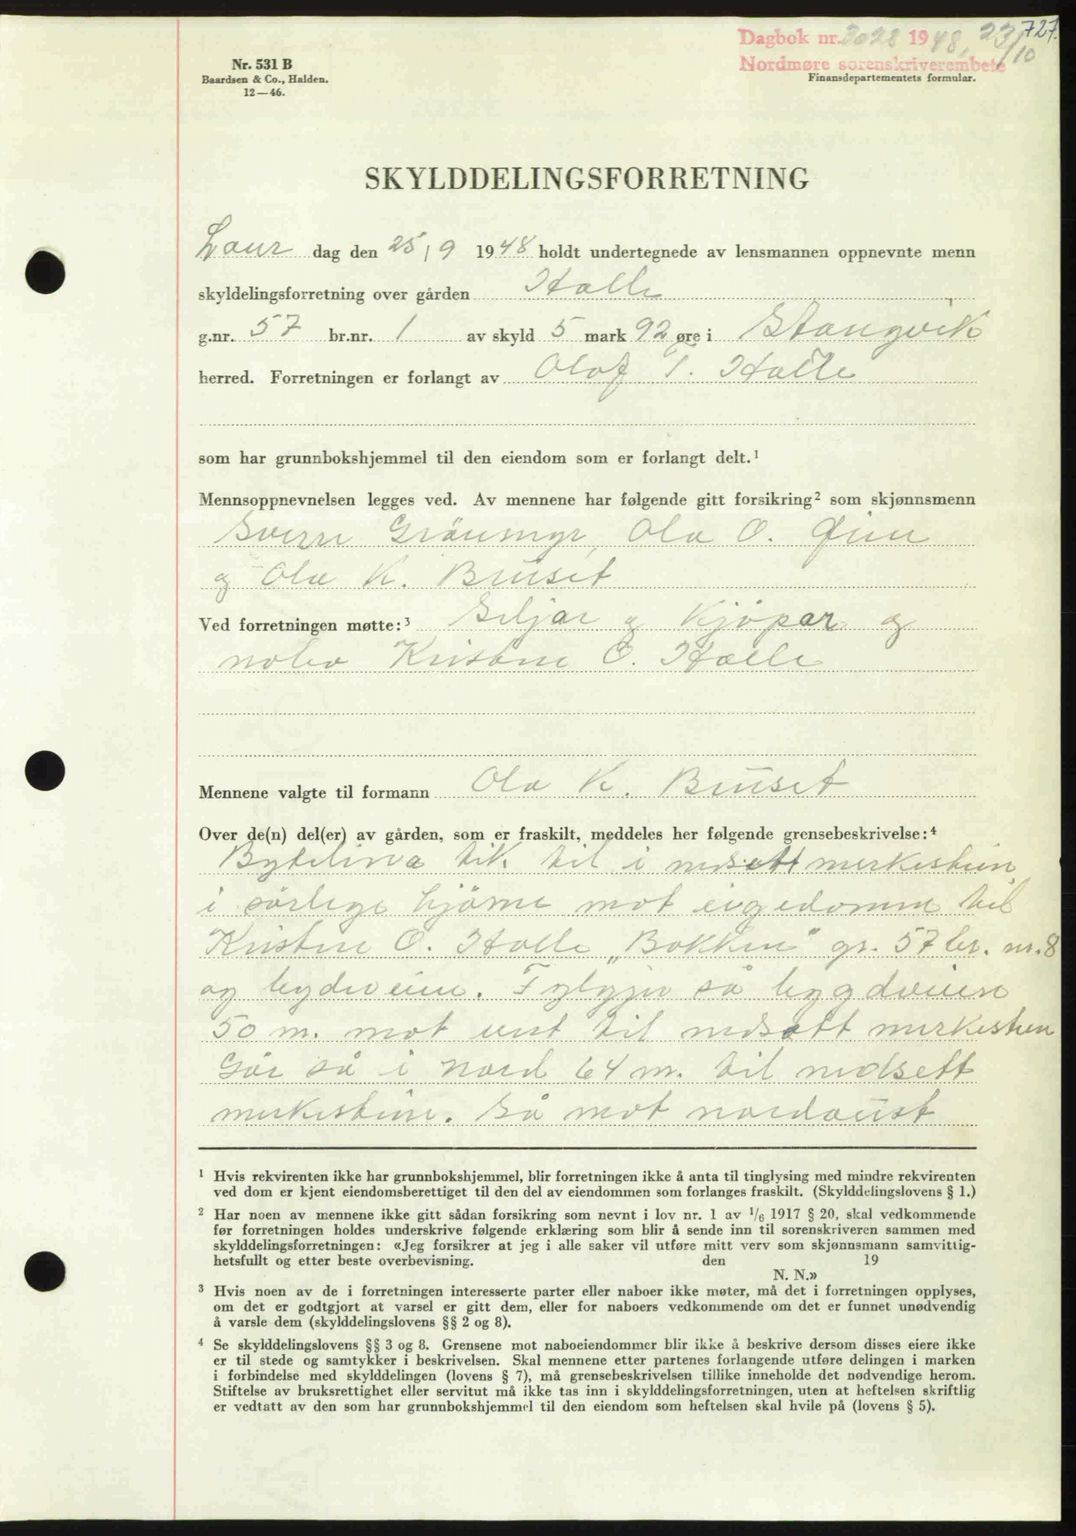 727.
Dagbok nr. 3028 1948, 23/10
Nordmøre sorenskriverembete
Nr. 531 B
Baardsen & Co., Halden.
12—46.
Finansdepartementets formular.
SKYLDDELINGSFORRETNING
Laur dag den 25/9 1948 holdt undertegnede av lensmannen oppnevnte menn
skyldelingsforretning over gården Halle
g.nr. 57 br.nr. 1 av skyld 5 mark 92 øre i Stangvik
herred. Forretningen er forlangt av Olof T. Halle
som har grunnbokshjemmel til den eiendom som er forlangt delt.¹
Mennsoppnevnelsen legges ved. Av mennene har følgende gitt forsikring² som skjønnsmenn
Sverre Grönmyr, Ola O.
og Ola K. Bruset
Ved forretningen møtte:³ Seljar og Kjöpar og
nabo Kristine O. Halle
Mennene valgte til formann Ola K. Bruset
Over de(n) del(er) av gården, som er fraskilt, meddeles her følgende grensebeskrivelse:⁴
Bytelina tek til i nedsett merkestein
i sørlege hjörne mot eigedomm til
Kristine O. Halle „Bakken" gr. 57 br. nr. 8
og bygdeveien. Fylgjer så bygdveien
50 m. mot vest til nedsett merkestein
Går så i nord 64 m. til nedsett
merkestein. Så mot nordaust
¹ Hvis rekvirenten ikke har grunnbokshjemmel, blir forretningen ikke å anta til tinglysing med mindre rekvirenten
ved dom er kjent eiendomsberettiget til den del av eiendommen som forlanges fraskilt. (Skylddelingslovens § 1.)
² Har noen av mennene ikke gitt sådan forsikring som nevnt i lov nr. 1 av 1/6 1917 § 20, skal vedkommende
før forretningen holdes underskrive følgende erklæring som blir å sende inn til sorenskriveren sammen med
skylddelingsforretningen: «Jeg forsikrer at jeg i alle saker vil utføre mitt verv som skjønnsmann samvittig-
hetsfullt og etter beste overbevisning. den 19
N. N.»
³ Hvis noen av de i forretningen interesserte parter eller naboer ikke møter, må det i forretningen opplyses,
om det er godtgjort at varsel er gitt dem, eller for naboers vedkommende om det er funnet unødvendig
å varsle dem (skylddelingslovens §§ 2 og 8).
⁴ Se skylddelingslovens §§ 3 og 8. Grensene mot naboeiendommer blir ikke å beskrive dersom disses eiere ikke
er til stede og samtykker i beskrivelsen. Skal mennene etter partenes forlangende utføre delingen i marken
i forbindelse med skylddelingen (lovens § 7), må grensebeskrivelsen tillike inneholde det nødvendige herom.
Stiftelse av bruksrettighet eller servitut må ikke tas inn i skylddelingsforretningen, uten at heftelsen skriftlig
er vedtatt av den som har grunnbokshjemmel til den eiendom som heftelsen skal hvile på (lovens § 5).